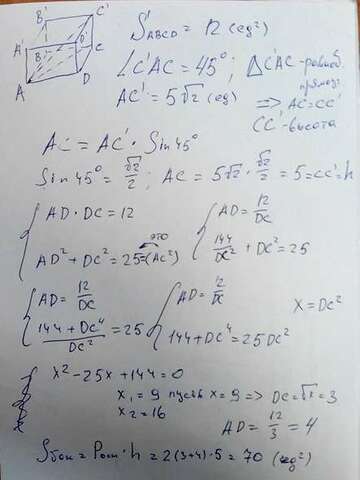 B' C'
A' D'
B C
A D
S_ABCD = 12 (eg²)
∠C'AC = 45°; △C'AC - равноб. прямоз.
AC' = 5√2 (eg) => AC = CC'
CC' - высота
AC = AC' · Sin 45°
Sin 45° = √2/2; AC = 5√2 · √2/2 = 5 = CC' = h
{ AD · DC = 12
AD² + DC² = 25 = (AC²) это
{ AD = 12/DC
144/DC² + DC² = 25
{ AD = 12/DC
(144 + DC⁴)/DC² = 25
{ AD = 12/DC
144 + DC⁴ = 25DC²
X = DC²
x² - 25x + 144 = 0
x₁ = 9 пусть x = 9 => DC = √x = 3
x₂ = 16
AD = 12/3 = 4
Sбок = Pосн · h = 2(3+4)·5 = 70 (eg²)